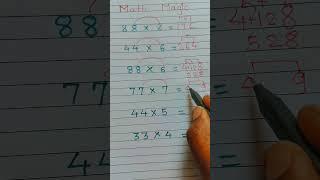 Math Magic
88 × 2 = 176
44 × 6 = 264
88 × 6 = 528
77 × 7 =
44 × 5 =
33 × 4 =
4128
528
4 9